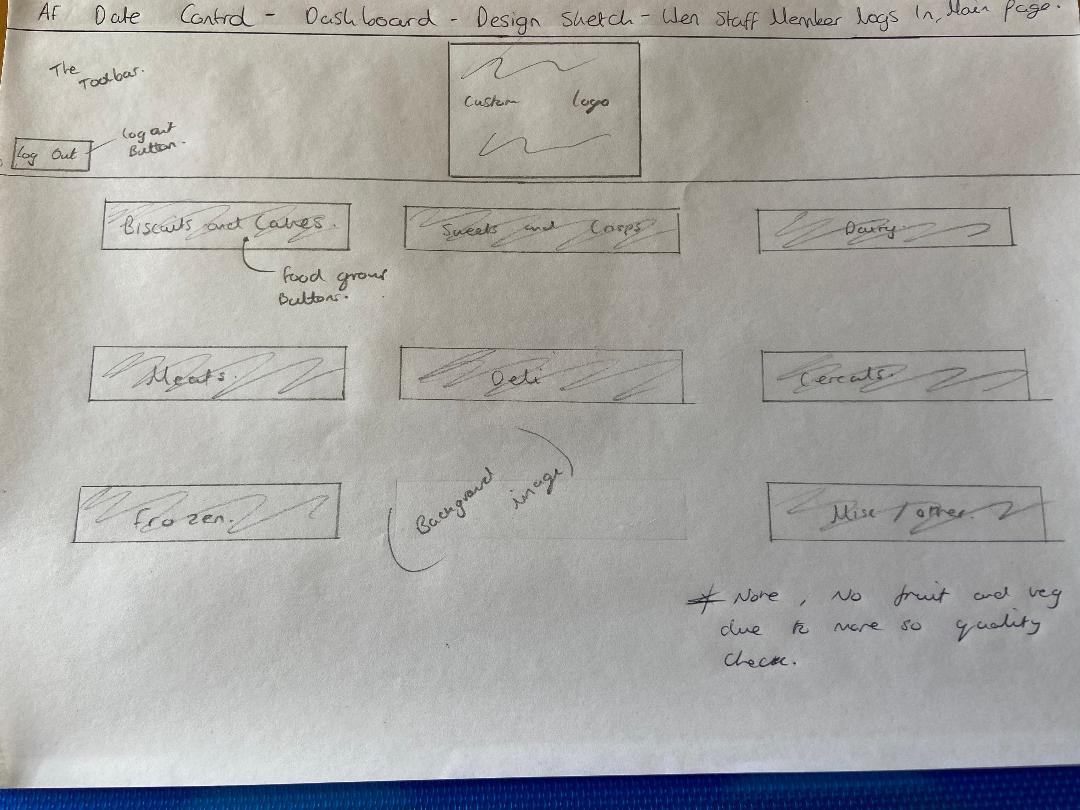 AF Date Control - Dashboard - Design Sketch - Wen Staff Member logs In, Main Page.
The
Toolbar.
Custom logo
Log out
Button.
Log Out
Biscuits and Cakes.
Sweets and Crisps
Dairy
food group
Buttons.
Meats.
Deli
Cereals.
Background image
Frozen.
Misc / other.
* Note, No fruit and veg
due to more so quality
Check.